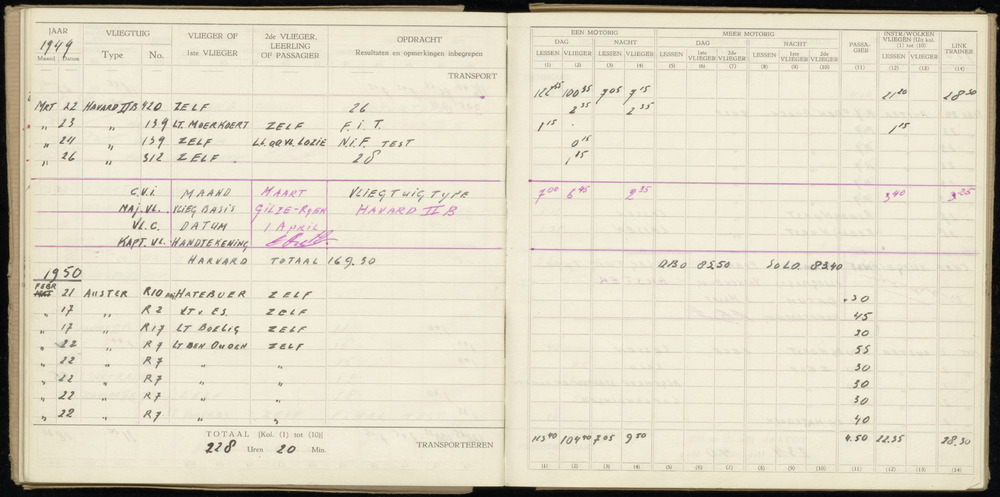 JAAR VLIEGTUIG VLIEGER OF 2de VLIEGER, LEERLING OPDRACHT
1949 Type No. 1ste VLIEGER OF PASSAGIER Resultaten en opmerkingen inbegrepen
Maand Datum
TRANSPORT
MRT 22 HAVARD IIB 920 ZELF 26
„ 23 „ 139 LT. MOERKOERT ZELF F.i.T.
„ 24 „ 139 ZELF N.I.F. TEST
„ 26 „ 312 ZELF 28
C.V.I MAAND MAART VLIEGTUIG TYPE
MAJ. VL. VLIEGBASIS GILZE-RYEN HAVARD II B
VL.C. DATUM 1 APRIL
KAPT. VL. HANDTEKENING
HARVARD TOTAAL 169.30
1950
FEBR
MRT 21 AUSTER R10 HATEBUER ZELF
„ 17 „ R2 LT v ES. ZELF
„ 17 „ R17 LT BOELIG ZELF
„ 22 „ R7 LT BEN OUDEN ZELF
„ 22 „ R7 „ „
„ 22 „ R7 „ „
„ 22 „ R7 „ „
„ 22 „ R7 „ „
TOTAAL [Kol. (1) tot (10)]
228 Uren 20 Min.
TRANSPORTEEREN
EEN MOTORIG MEER MOTORIG PASSA- GIER INSTR/WOLKEN VLIEGEN [Uit kol. (1) tot (10)] LINK TRAINER
DAG NACHT DAG NACHT
LESSEN VLIEGER LESSEN VLIEGER LESSEN 1ste VLIEGER 2de VLIEGER LESSEN 1ste VLIEGER 2de VLIEGER LESSEN VLIEGER
(1) (2) (3) (4) (5) (6) (7) (8) (9) (10) (11) (12) (13) (14)
100 35 7 05 7 15 21 20 28 30
2 35 2 35
1 15 1 15
0 15
7 00 6 45 2 35 3 40 3 25
D.B.O 85.50 SOLO 83.40
.30
45
30
55
30
30
30
40
113 40 104 40 7 05 9 50 4.50 22.35 28.30
(1) (2) (3) (4) (5) (6) (7) (8) (9) (10) (11) (12) (13) (14)